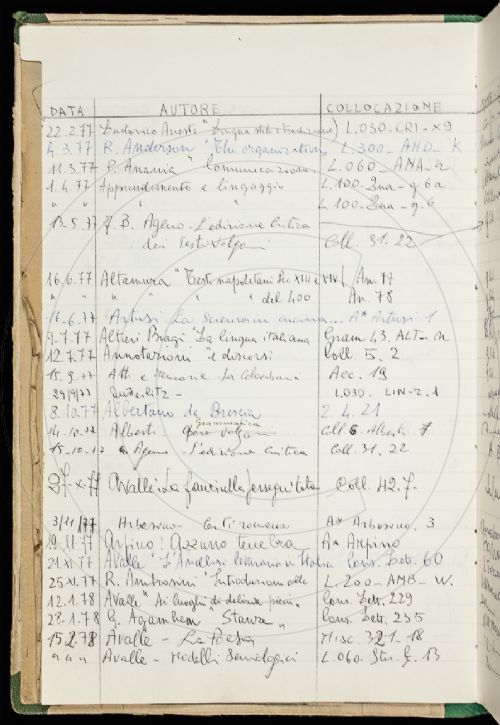 DATA AUTORE COLLOCAZIONE
22.2.77 Ludovico Ariosto "Lingua stile e tradizione) L.030-CRI-x9
4.3.77 R. Anderson "The organization L.300-AND-K
11.3.77 P. Anania "Comunicazione L.060-ANA-2
1.4.77 Apprendimento e linguaggio L.100-Qua-q 6a
" " " " L.100-Qua-q.6
13.5.77 F. B. Ageno - L'edizione critica
dei testi volgari Coll. 31.22
16.6.77 Altamura "Testi napoletani Sec XIII e XIV Am. 77
" " " " " del 400 Am. 78
16.6.77 Artusi La Scienza in cucina... A* Artusi 1
9.7.77 Altieri Biagi "La lingua italiana Gram 43. ALT-
12.7.77 Annotazioni e discorsi Coll 5.2
15.9.77 Atti La Colombaria Acc. 19
29/9/77 Austerlitz - L.030. LIN-2.1
8.10.77 Albertano da Brescia 2.4.21
14.10.77 Alberti - Grammatica volgare Coll 6 Alberti 7
15.10.77 Ageno - L'edizione critica Coll. 31.22
27.X.77 Avalle: La fanciulla perseguitata Coll. 42.7.
3/11/77 Arbasino - Certi romanzi A* Arbasino. 3
19.11.77 Arpino: Azzurro tenebra A* Arpino
21.XI.77 Avalle "L'Analisi letteraria in Italia Cons. Lett. 60
25.XI.77 R. Ambrosini "Introduzione alla L.200-AMB-W.
12.1.78 Avalle "Ai luoghi di delizia pieni" Cons. Lett. 229
28.1.78 G. Agamben Stanze " Cons. Lett. 235
15.2.78 Avalle - La Poesia Misc. 321.18
" " " Avalle - Modelli Semiologici L.060. Stu. 13